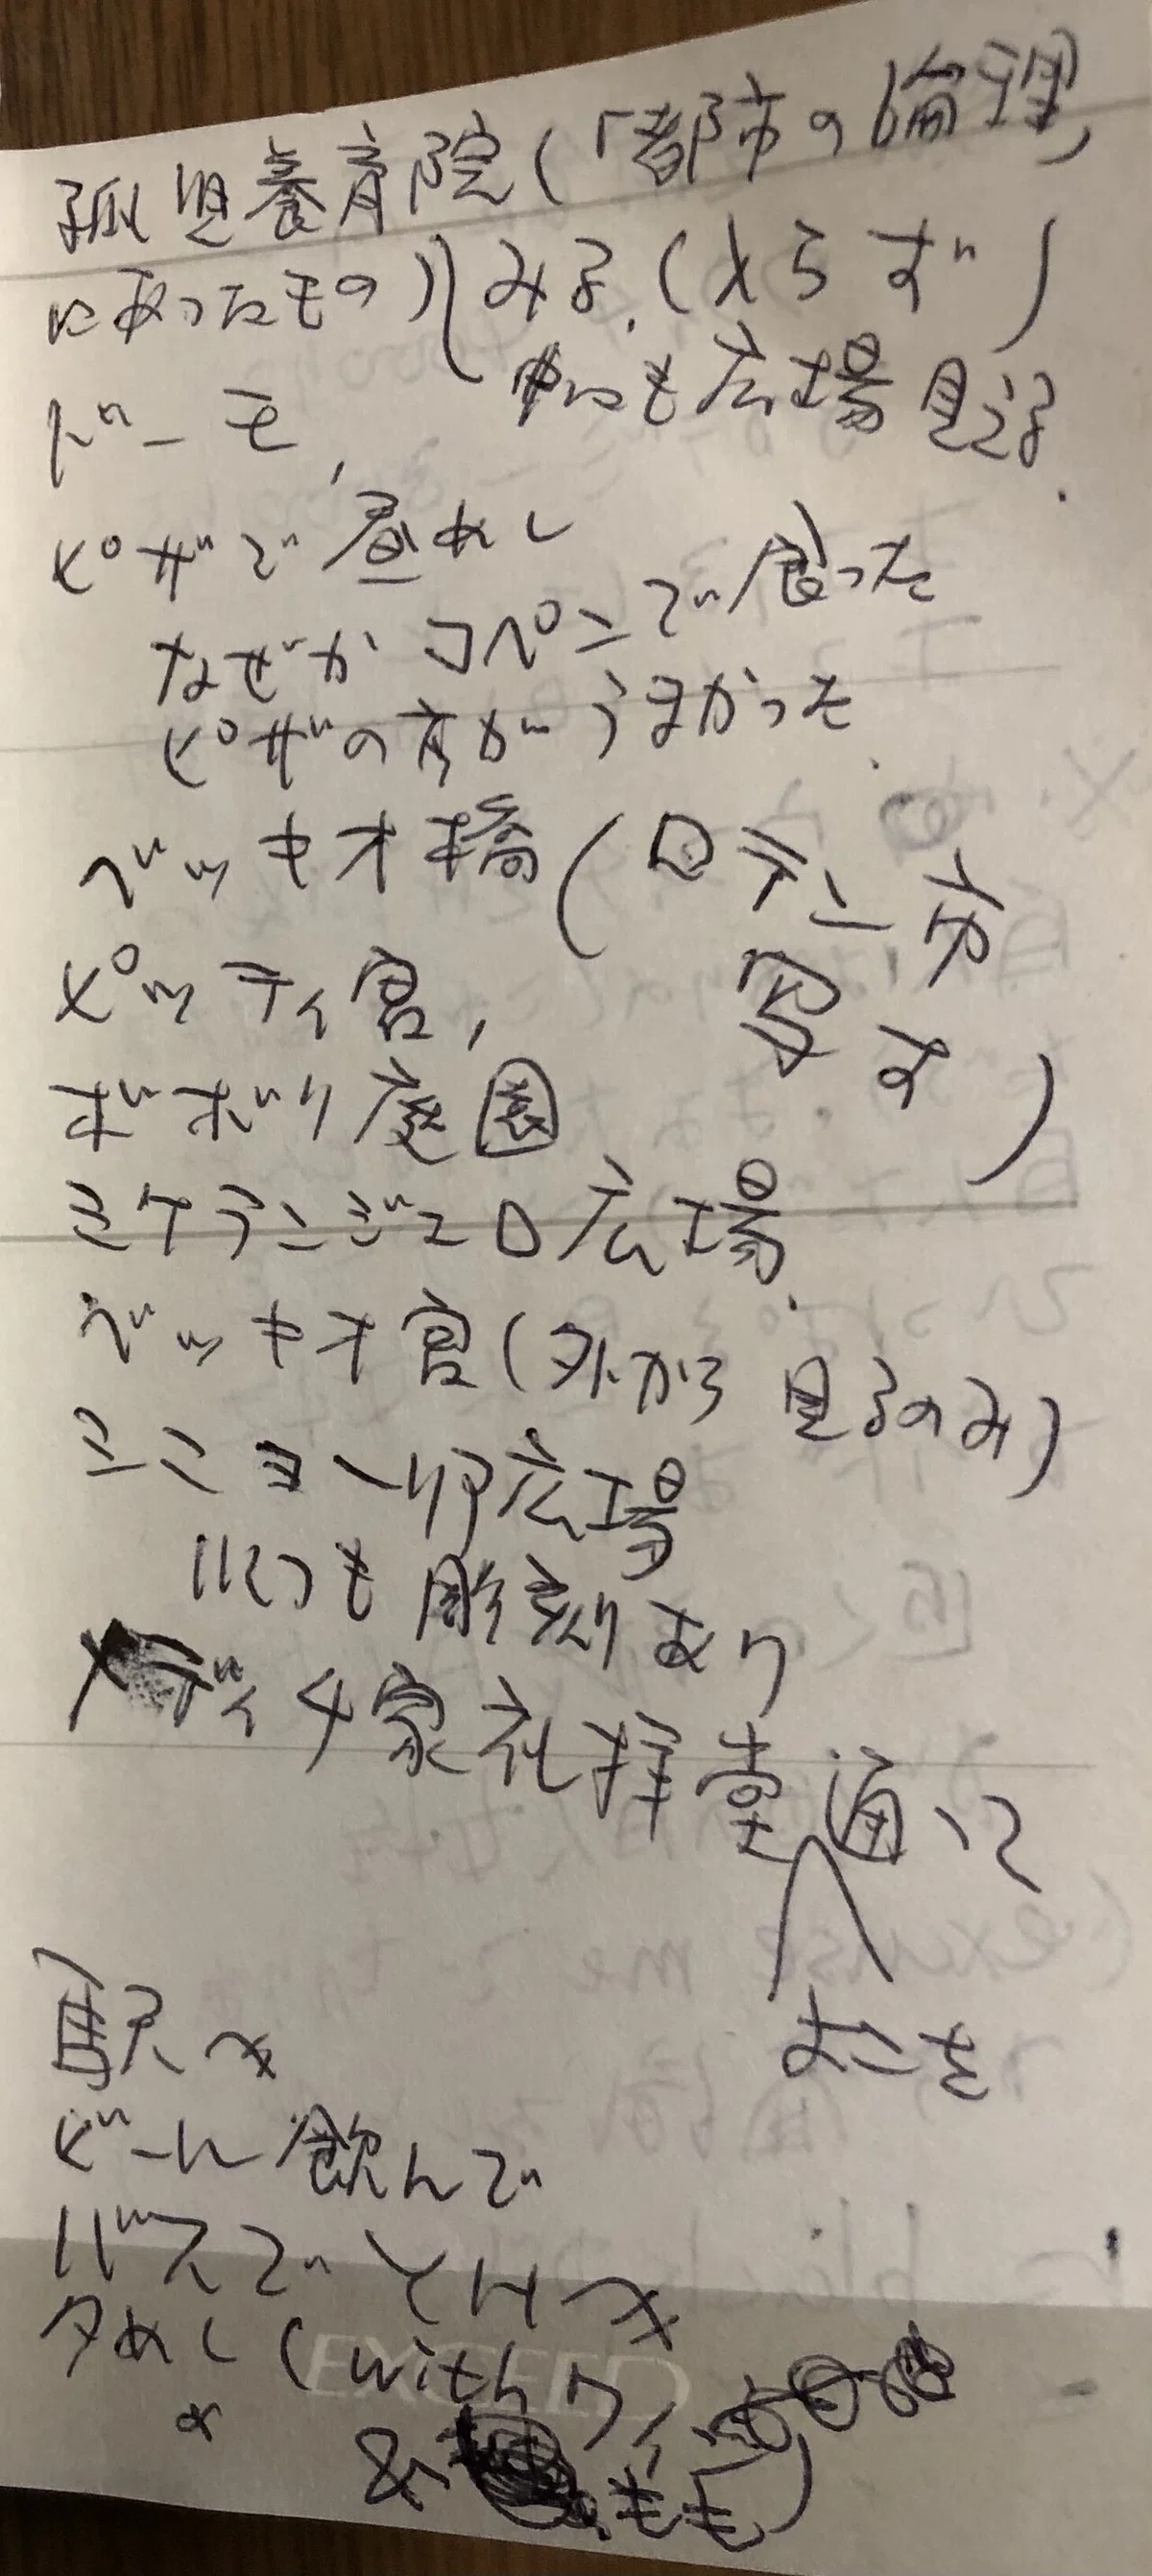 孤児養育院(「都市の倫理」
にあったもの)みる.(入らず)
ドーモ, 中にも広場見える.
ピザで昼めし
なぜかコペンで食った
ピザの方がうまかった.
ベッキオ橋(ロテン分
写す)
ピッティ宮,
ボボリ庭園
ミケランジェロ広場.
ベッキオ宮(外から見るのみ)
シニョーリア広場
いくつも彫刻あり
メディチ家礼拝堂通って
よこを
駅へ
ビール飲んで
バスでYHへ
夕めし(withワイ
& もも)
EXCEED